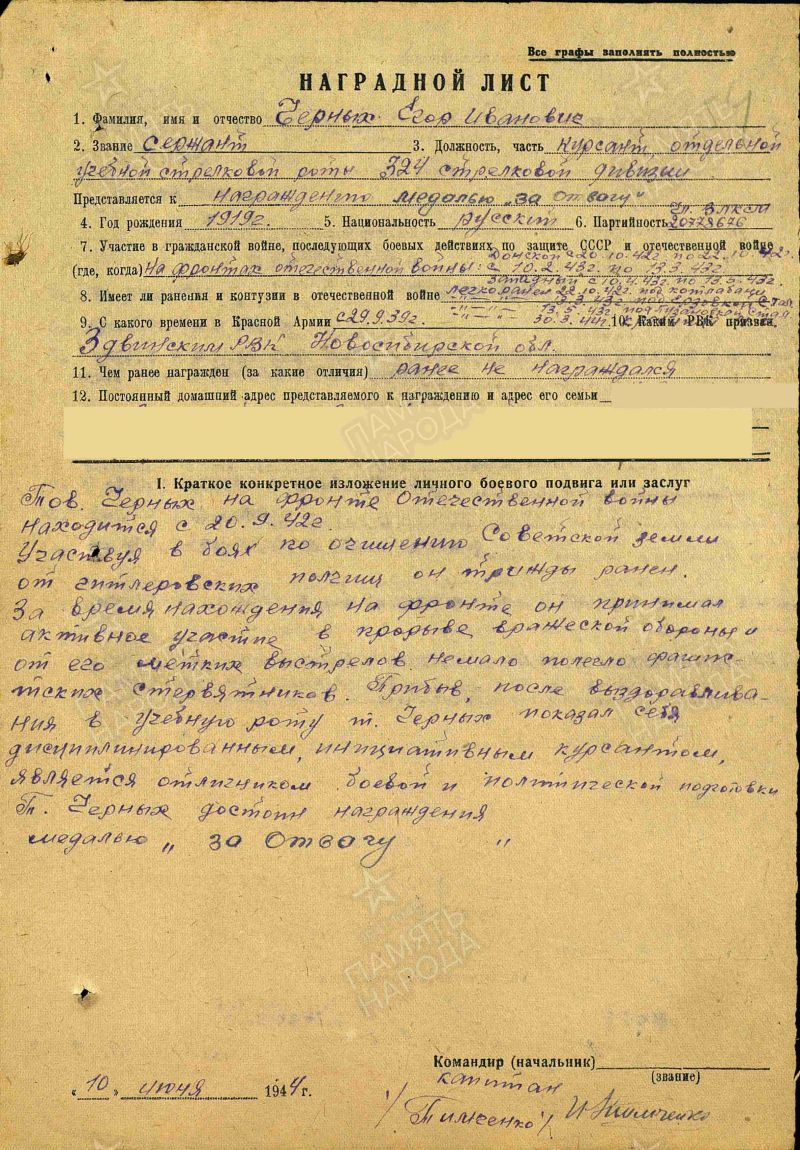 Все графы заполнять полностью
НАГРАДНОЙ ЛИСТ
1. Фамилия, имя и отчество Черных Егор Иванович
2. Звание Сержант 3. Должность, часть курсант отдельной
учебной стрелковой роты 324 стрелковой дивизии
Представляется к награждению медалью „за отвагу"
чл. ВЛКСМ
4. Год рождения 1919г. 5. Национальность русский 6. Партийность 20778676
7. Участие в гражданской войне, последующих боевых действиях по защите СССР и отечественной войне
Донской с 20.10.42г по 22.10.42г.
(где, когда) на фронтах отечественной войны: с 10.2.43г. по 13.3.43г.
Западный с 10.4.43г. по 13.5.43г.
8. Имеет ли ранения и контузии в отечественной войне легко ранен 22.10.42г. под Котлубани
13.3.43г. под
13.5.43г. под
9. С какого времени в Красной Армии с 29.9.39г. 30.3.44г. 10. Каким РВК призван
Здвинским РВК Новосибирской обл.
11. Чем ранее награжден (за какие отличия) ранее не награждался
12. Постоянный домашний адрес представляемого к награждению и адрес его семьи
I. Краткое конкретное изложение личного боевого подвига или заслуг
Тов. Черных на фронте Отечественной войны
находится с 20.9.42г.
Участвуя в боях по очищению Советской земли
от гитлеровских полчищ он трижды ранен.
За время нахождения на фронте он принимал
активное участие в прорыве вражеской обороны и
от его метких выстрелов немало полегло фашис-
тских стервятников. Прибыв, после выздоравлива-
ния в учебную роту т. Черных показал себя
дисциплинированным, инициативным курсантом,
является отличником боевой и политической подготовки
Т. Черных достоин награждения
медалью „за Отвагу"
Командир (начальник)
(звание)
капитан
„10" июня 1944 г.
/Тимченко/ Тимченко
ПАМЯТЬ НАРОДА